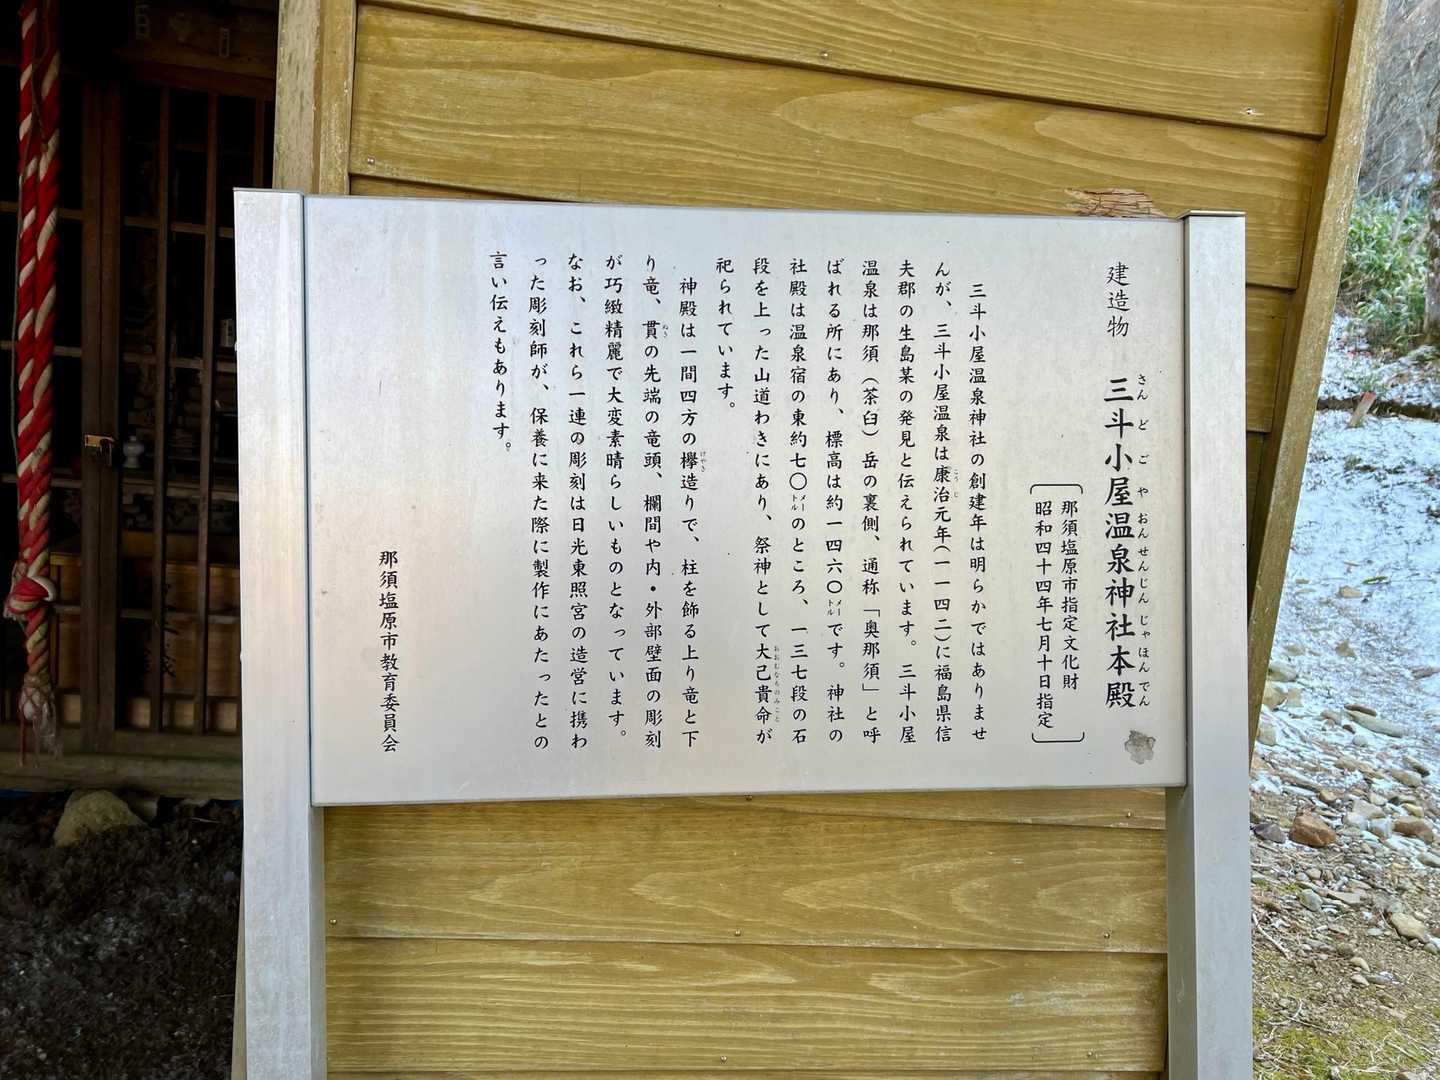 建造物　三斗小屋温泉神社本殿
さんどごやおんせんじんじゃほんでん
那須塩原市指定文化財
昭和四十四年七月十日指定
三斗小屋温泉神社の創建年は明らかではありませ
んが、三斗小屋温泉は康治元年(一一四二)に福島県信
こうじ
夫郡の生島某の発見と伝えられています。三斗小屋
温泉は那須（茶臼）岳の裏側、通称「奥那須」と呼
ばれる所にあり、標高は約一四六〇メートルです。神社の
社殿は温泉宿の東約七〇メートルのところ、一三七段の石
段を上った山道わきにあり、祭神として大己貴命が
おおむなちのみこと
祀られています。
神殿は一間四方の欅造りで、柱を飾る上り竜と下
けやき
り竜、貫の先端の竜頭、欄間や内・外部壁面の彫刻
ぬき
が巧緻精麗で大変素晴らしいものとなっています。
なお、これら一連の彫刻は日光東照宮の造営に携わ
った彫刻師が、保養に来た際に製作にあたったとの
言い伝えもあります。
那須塩原市教育委員会